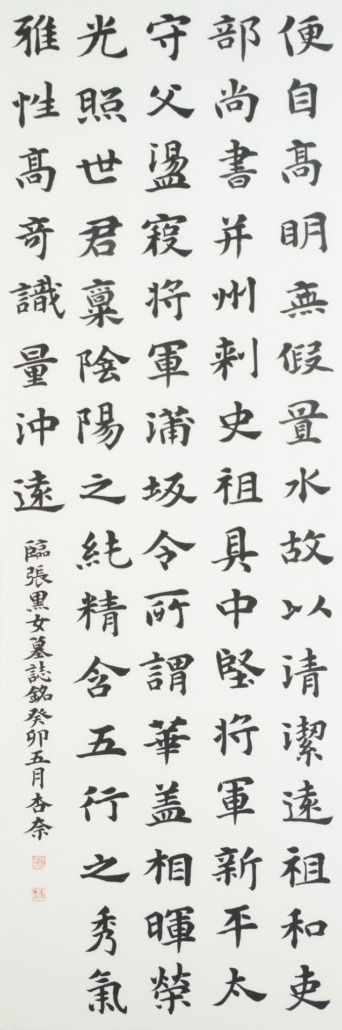 便自高明無假置水故以清潔遠祖和吏
部尚書并州刺史祖具中堅将軍新平太
守父盪寇将軍蒲坂令所謂華盖相暉榮
光照世君稟陰陽之純精含五行之秀氣
雅性高奇識量沖遠
臨張黒女墓誌銘癸卯五月杏奈